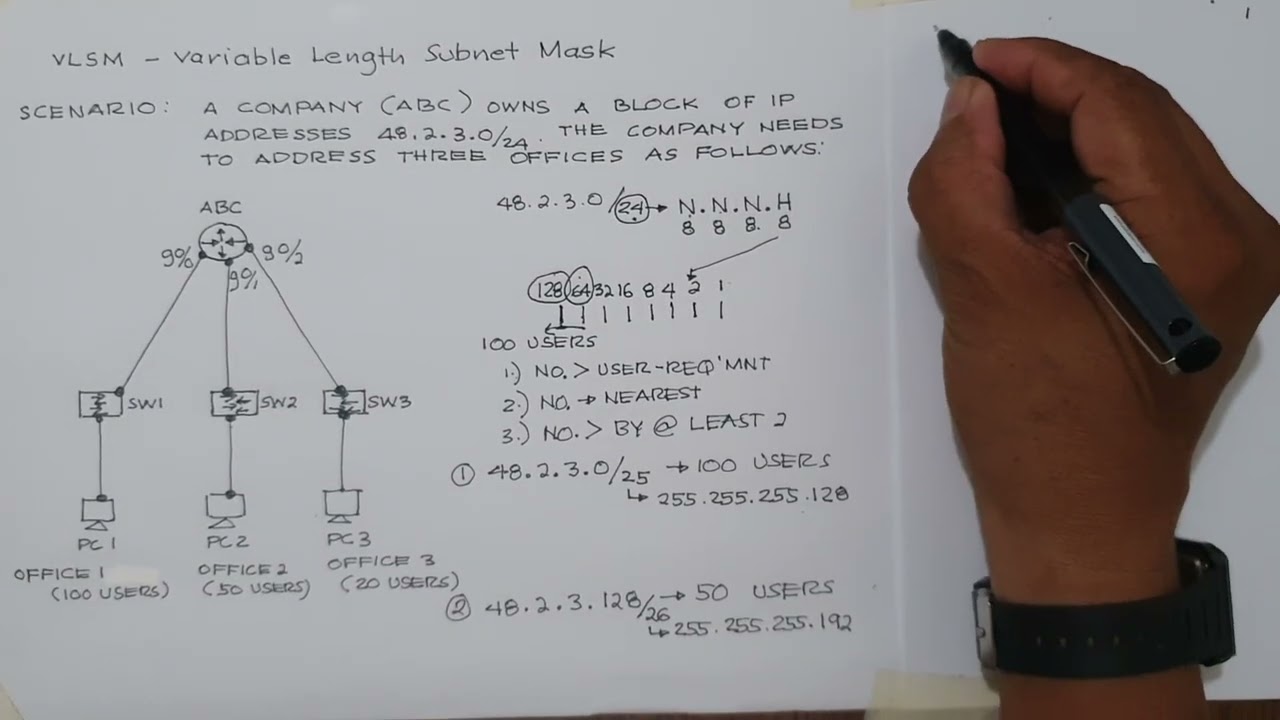 VLSM - Variable Length Subnet Mask
SCENARIO: A COMPANY (ABC) OWNS A BLOCK OF IP
ADDRESSES 48.2.3.0/24. THE COMPANY NEEDS
TO ADDRESS THREE OFFICES AS FOLLOWS:
ABC
g0/0
g0/1
g0/2
SW1
SW2
SW3
PC1
PC2
PC3
OFFICE 1
(100 USERS)
OFFICE 2
(50 USERS)
OFFICE 3
(20 USERS)
48.2.3.0/24 → N.N.N.H
8 8 8. 8
128 64 32 16 8 4 2 1
100 USERS
1.) NO. > USER-REQ'MNT
2.) NO. → NEAREST
3.) NO. > BY @ LEAST 2
① 48.2.3.0/25 → 100 USERS
↳ 255.255.255.128
② 48.2.3.128/26 → 50 USERS
↳ 255.255.255.192